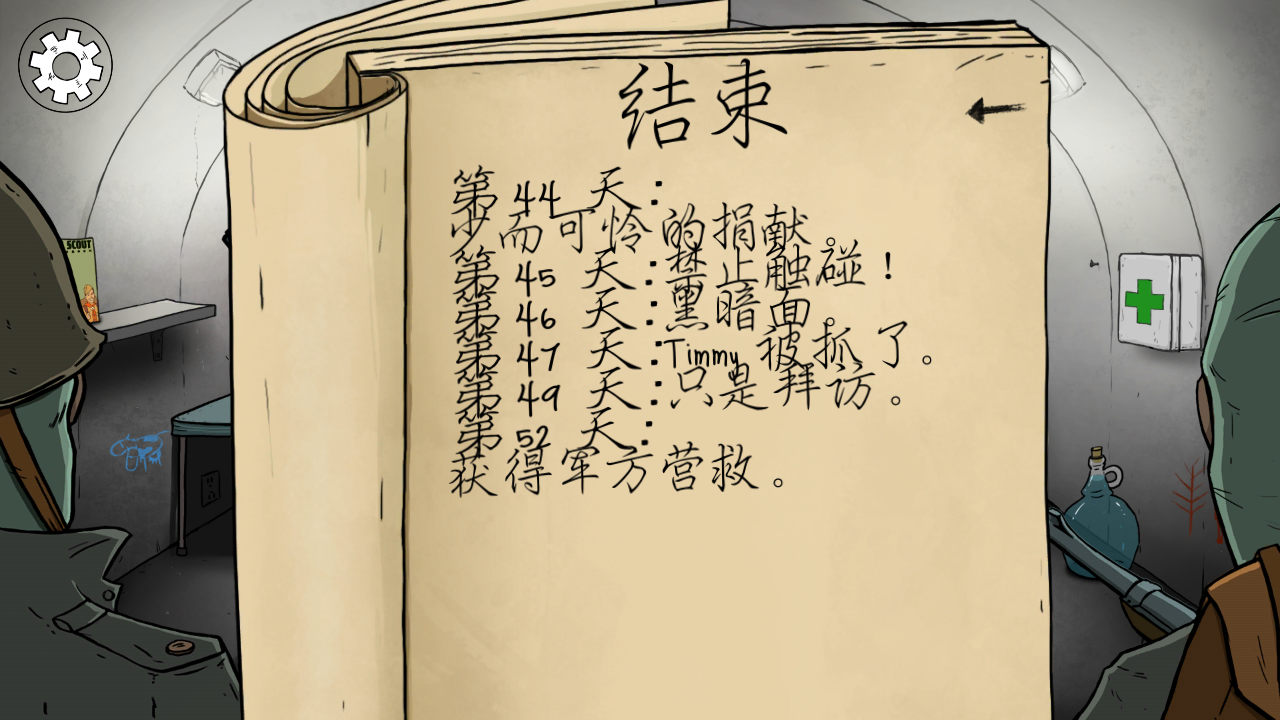 结束
第 44 天：
少而可怜的捐献。
第 45 天：禁止触碰！
第 46 天：黑暗面。
第 47 天：Timmy 被抓了。
第 49 天：只是拜访。
第 52 天：
获得军方营救。
SCOUT